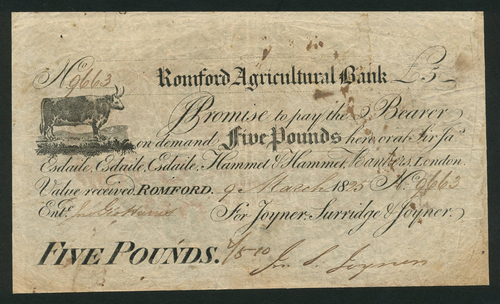 No. 9663
Romford Agricultural Bank £5
I Promise to pay the Bearer
on demand Five Pounds here or at Sir Jas.
Esdaile, Esdaile, Esdaile, Hammet & Hammet, Bankers, London.
Value received ROMFORD. 9 March 1825 No. 9663
Entd. For Joyner, Surridge & Joyner.
FIVE POUNDS.
Joyner